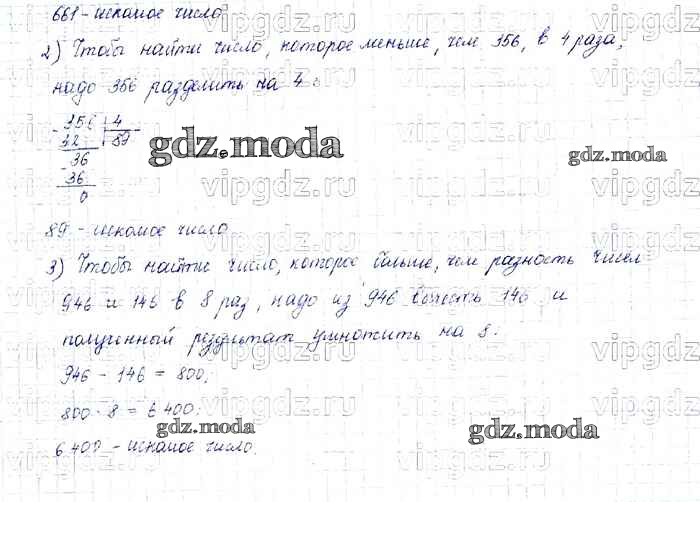 661 - искомое число.
2) Чтобы найти число, которое меньше, чем 356, в 4 раза,
надо 356 разделить на 4.
- 356 | 4
32 | 89
- 36
36
0
gdz.moda
gdz.moda
89 - искомое число
3) Чтобы найти число, которое больше, чем разность чисел
946 и 146 в 8 раз, надо из 946 вычесть 146 и
полученный результат умножить на 8.
946 - 146 = 800;
800 · 8 = 6 400;
gdz.moda
gdz.moda
6 400 - искомое число.
vipgdz.ru
vipgdz.ru
vipgdz.ru
vipgdz.ru